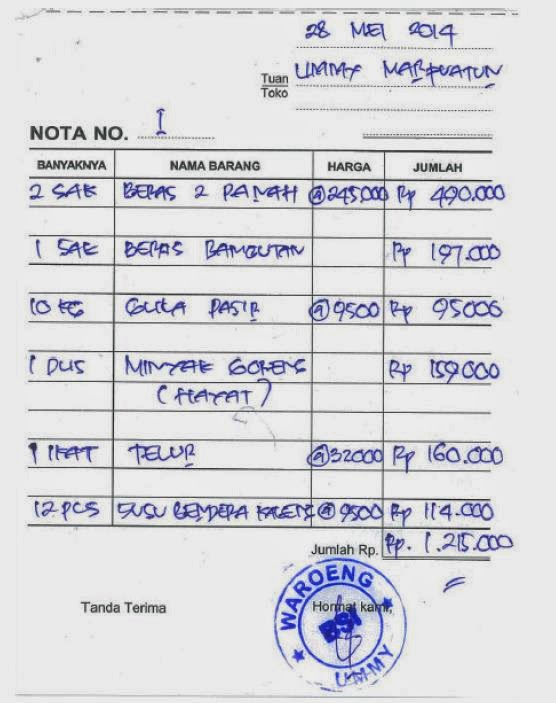 28 MEI 2014
Tuan UMMY MARFUATUN
Toko
NOTA NO. I
BANYAKNYA NAMA BARANG HARGA JUMLAH
2 SAK BERAS 2 PANAH @245.000 Rp 490.000
1 SAK BERAS RAMBUTAN Rp 197.000
10 KG GULA PASIR @9500 Rp 95000
1 DUS MINYAK GORENG Rp 159000
(HAYAT)
1 IKAT TELUR @32000 Rp 160.000
12 PCS SUSU BENDERA KALENG @9500 Rp 114.000
Jumlah Rp. Rp. 1.215.000
Tanda Terima Hormat kami,
WAROENG
BSI
UMMY